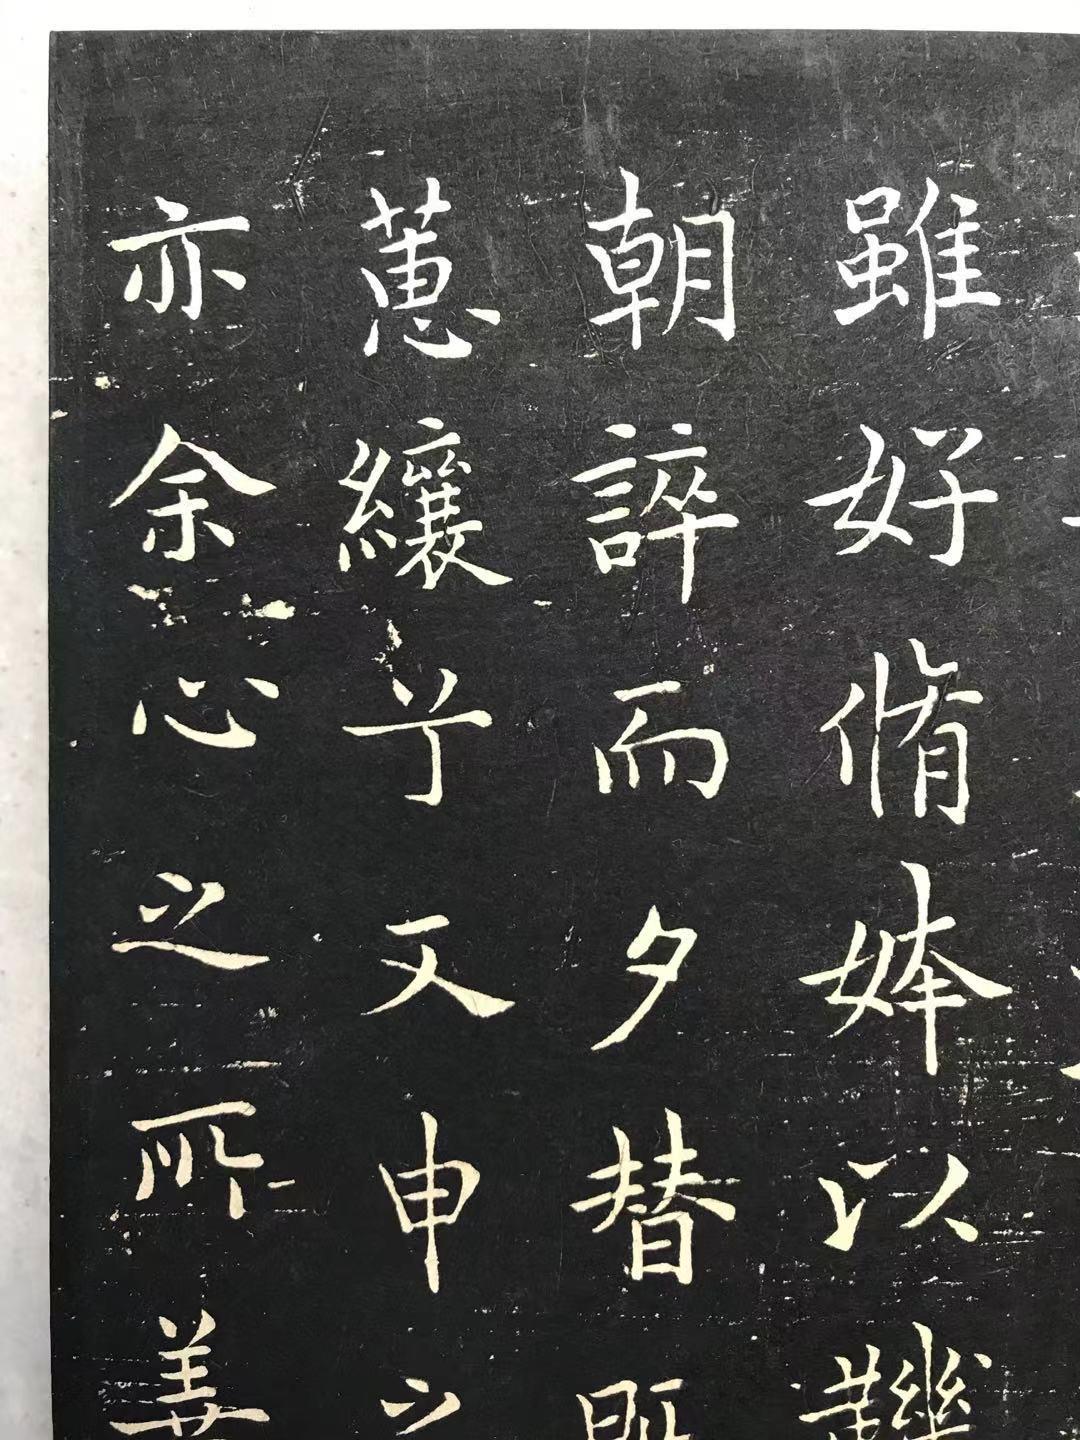 雖好脩姱以鞿
朝誶而夕替既
蕙纕兮又申之
亦余心之所善